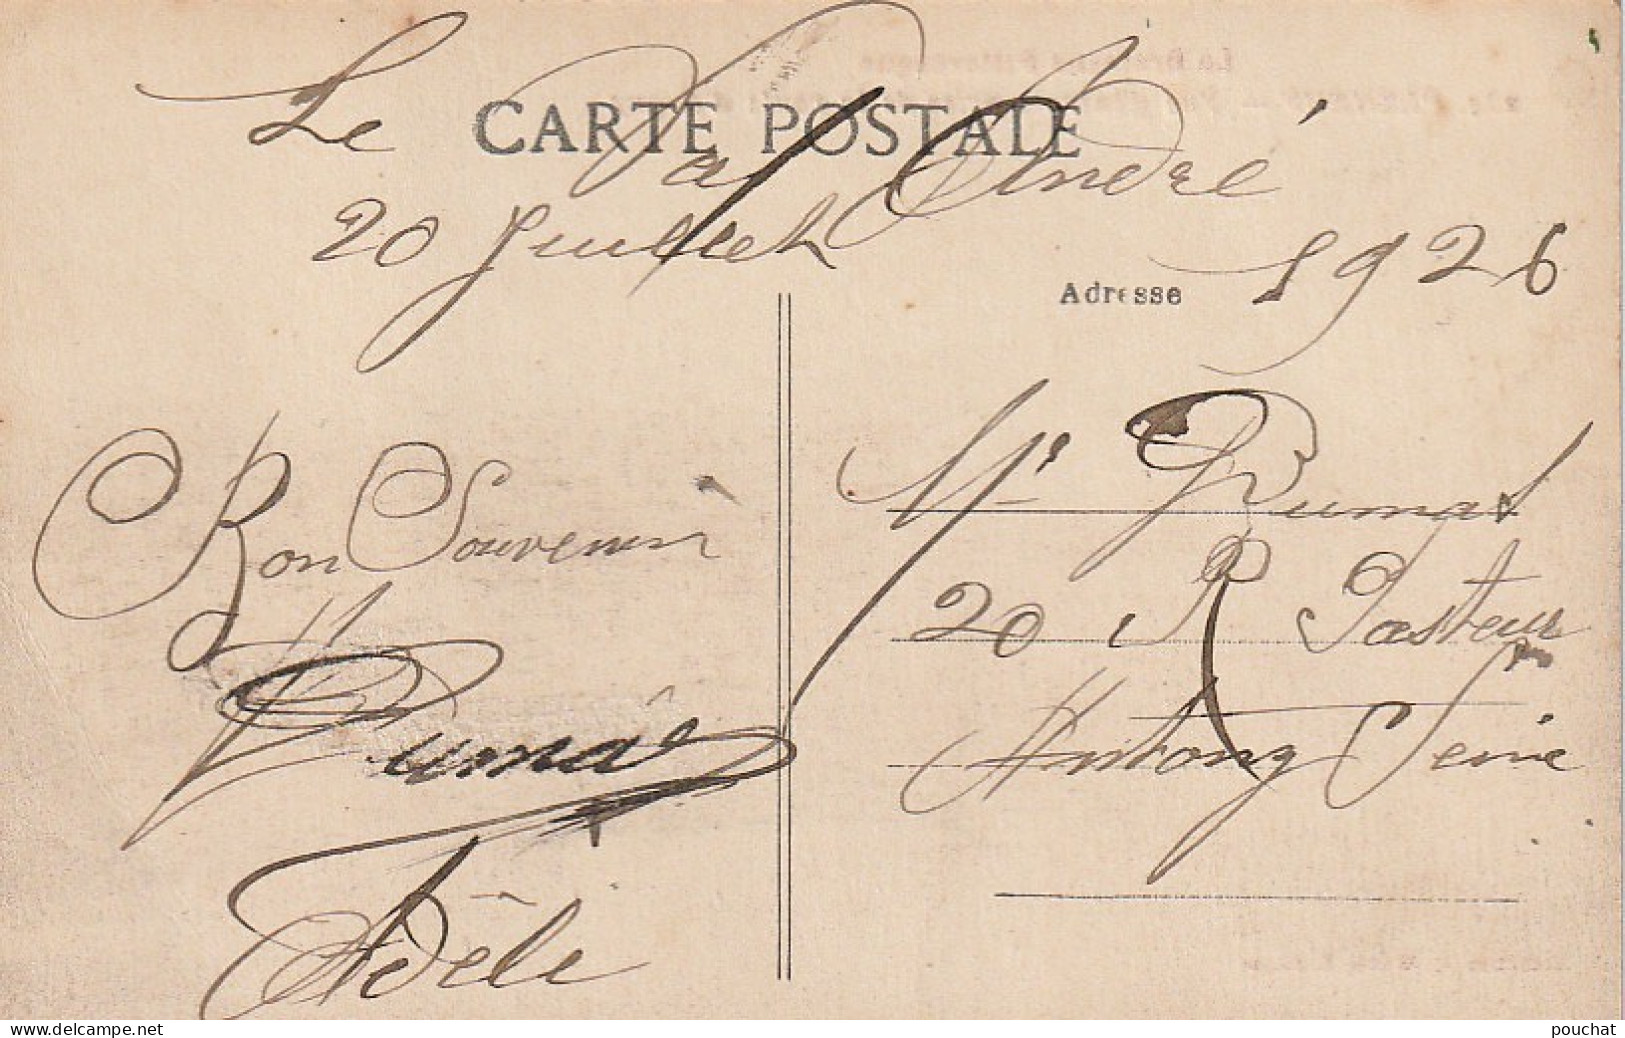 CARTE POSTALE
Le Val André
20 Juillet 1926
Adresse
Bon Souvenir
Dumas
Adèle
Mr Dumas
20 R Pasteur
Antony Seine
www.delcampe.net
pouchat